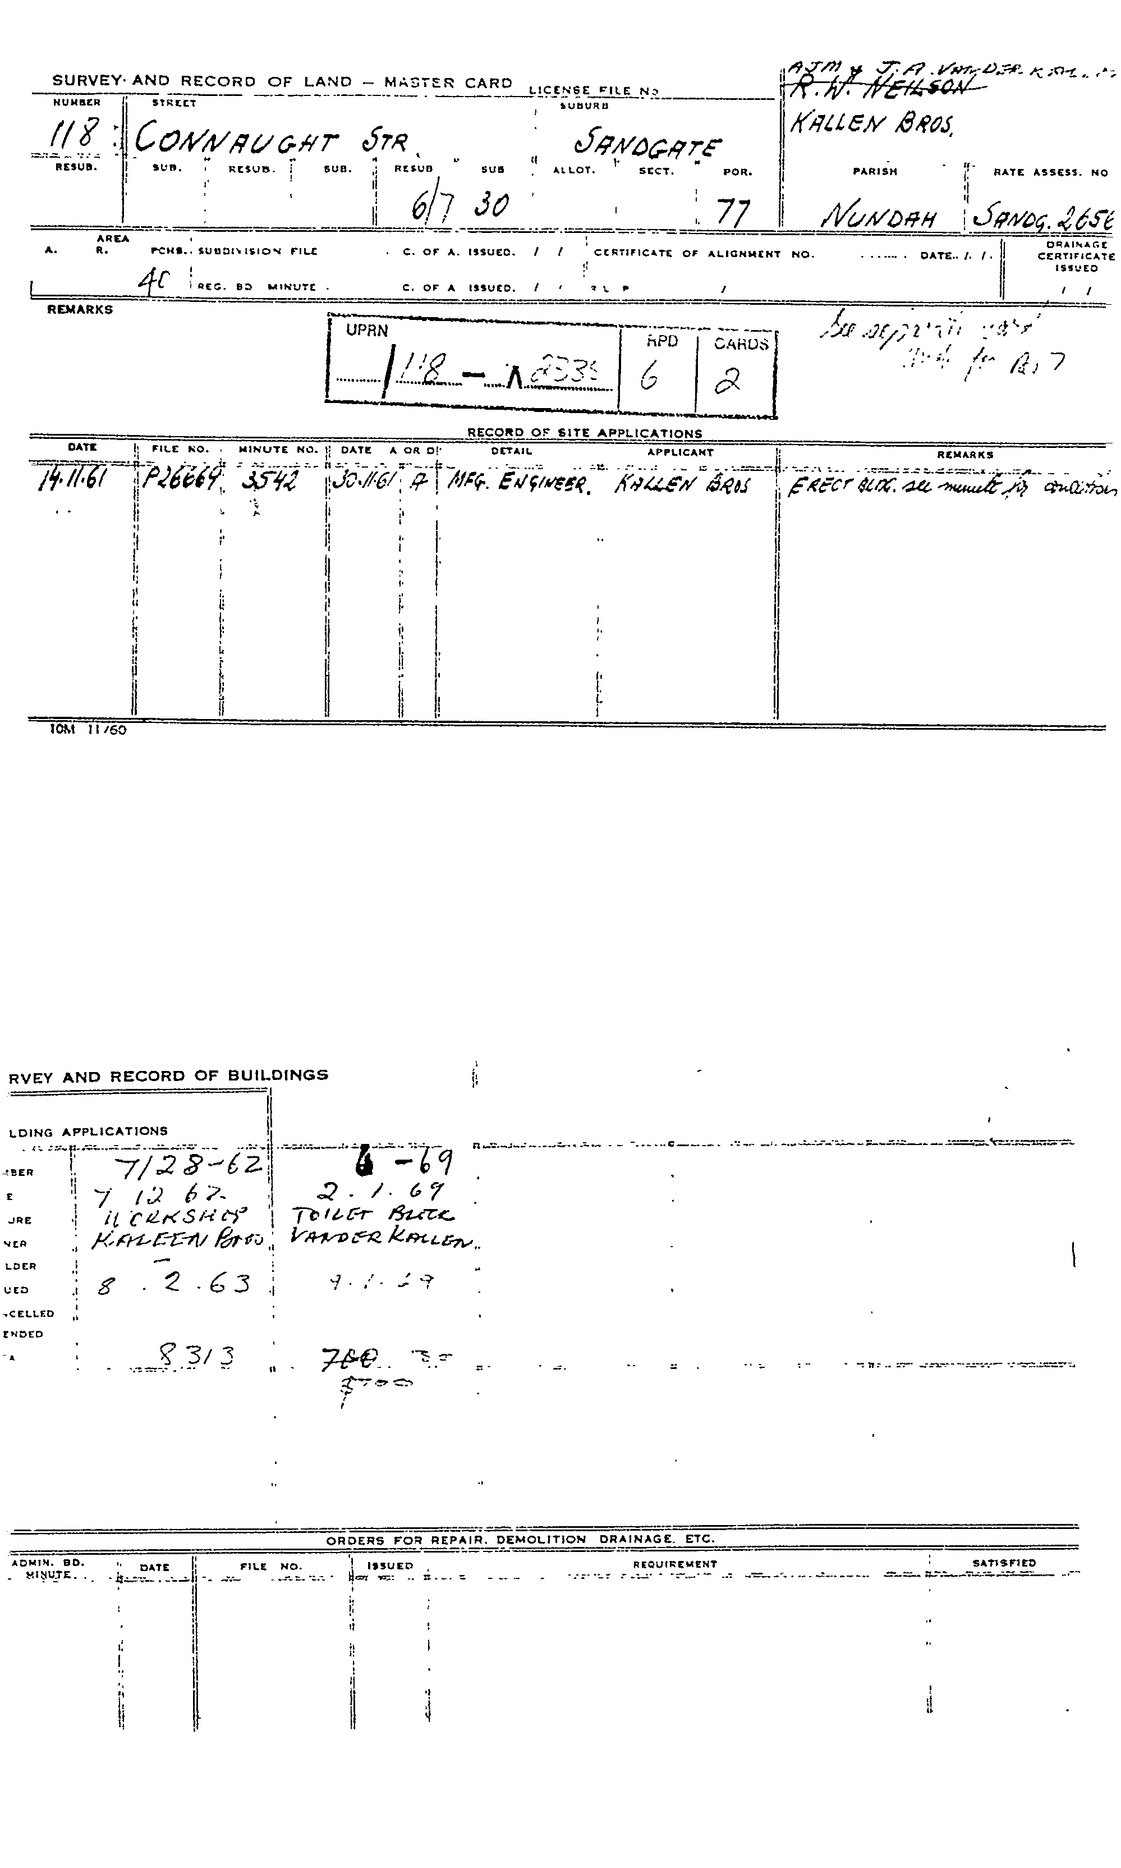 AJM & J.A. VANDER
SURVEY AND RECORD OF LAND — MASTER CARD LICENSE FILE No R.W. NEILSON
NUMBER STREET SUBURB KALLEN BROS.
118 CONNAUGHT STR. SANDGATE
RESUB. SUB. RESUB. SUB. RESUB SUB ALLOT. SECT. POR. PARISH RATE ASSESS. NO
6/7 30 77 NUNDAH SANDG. 2656
A. AREA R. PCHS. SUBDIVISION FILE C. OF A. ISSUED. / / CERTIFICATE OF ALIGNMENT NO. ....... DATE../. /. DRAINAGE CERTIFICATE ISSUED
40 REG. BD MINUTE . C. OF A ISSUED. / / / / /
REMARKS See separate card
UPRN RPD CARDS for 7
/118 — 6 2
RECORD OF SITE APPLICATIONS
DATE FILE NO. MINUTE NO. DATE A OR D DETAIL APPLICANT REMARKS
14.11.61 P26664 3542 30.11.61 A MFG. ENGINEER. KALLEN BROS ERECT BLDG. see minute for conditions
10M 11/60
RVEY AND RECORD OF BUILDINGS
LDING APPLICATIONS
BER 7128-62 6 -69
E 7 12 62. 2.1.69
URE WORKSHOP TOILET BLOCK
NER KALLEEN BROS VANDER KALLEN.
LDER —
UED 8.2.63 9.1.69
CELLED
ENDED
A 8313 700
ORDERS FOR REPAIR. DEMOLITION DRAINAGE. ETC.
ADMIN. BD. MINUTE. DATE FILE NO. ISSUED REQUIREMENT SATISFIED